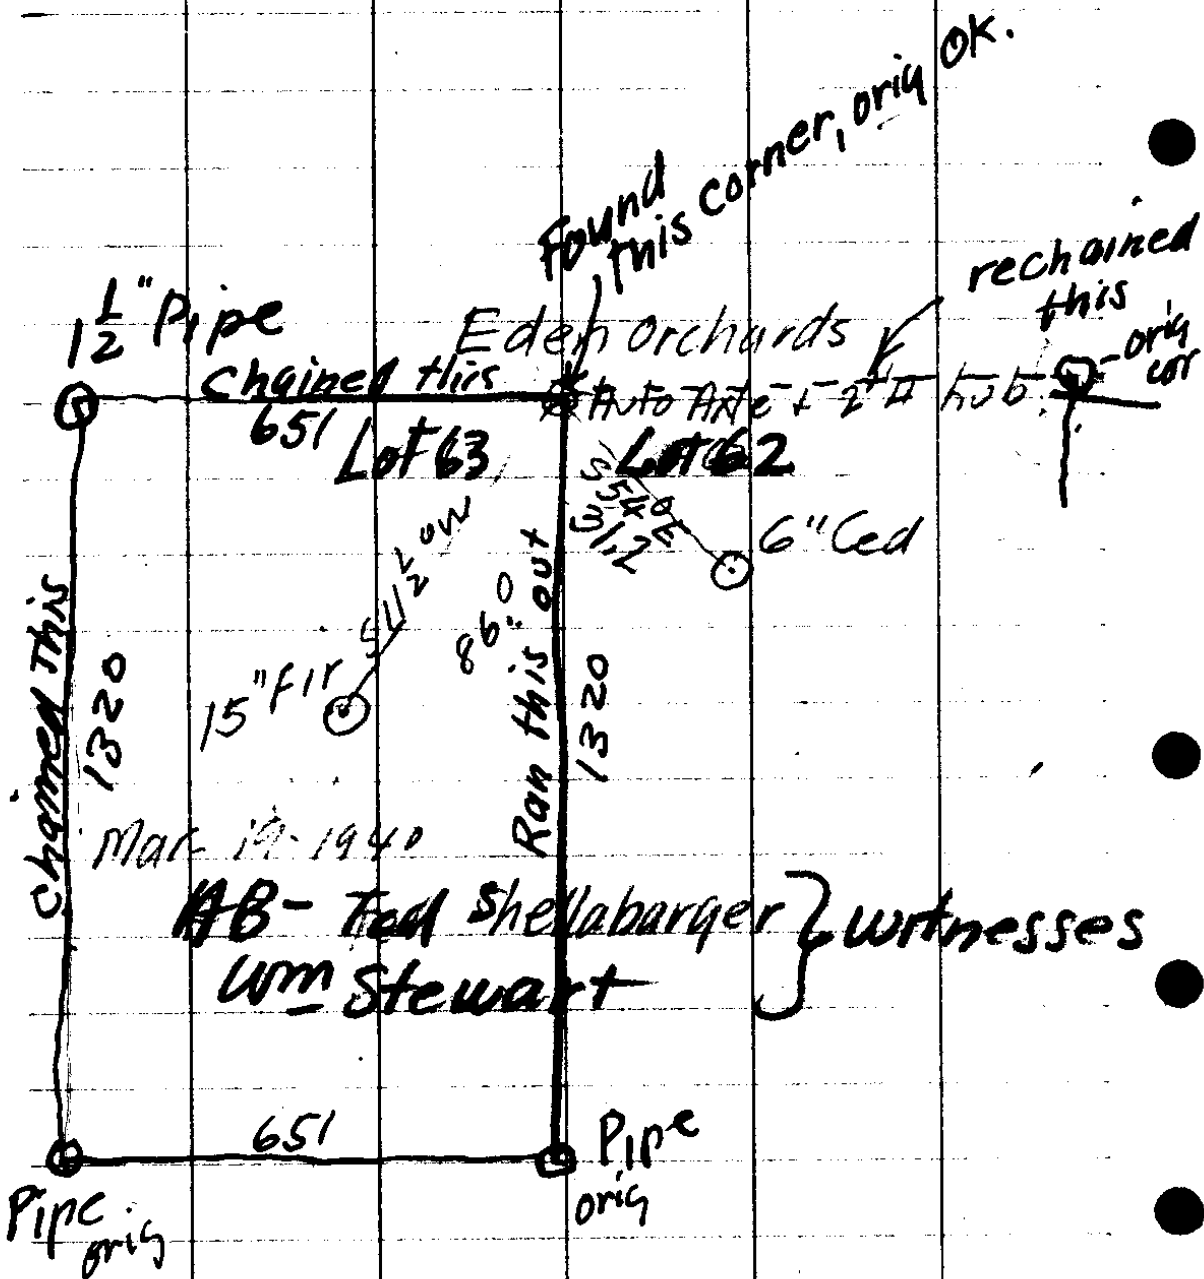 OK.
Found
this corner, orig
rechained
this
orig
cor
1 1/2" Pipe
Eden Orchards
Chained this
651
Auto Axle + 2" hub
Lot 63
Lot 62
6" Ced
15" Fir
86.0
Chained This
1320
Ran this out
1320
Mar 19-1940
AB- Ted Shellabarger
Wm Stewart
witnesses
651
Pipe
orig
Pipe
orig